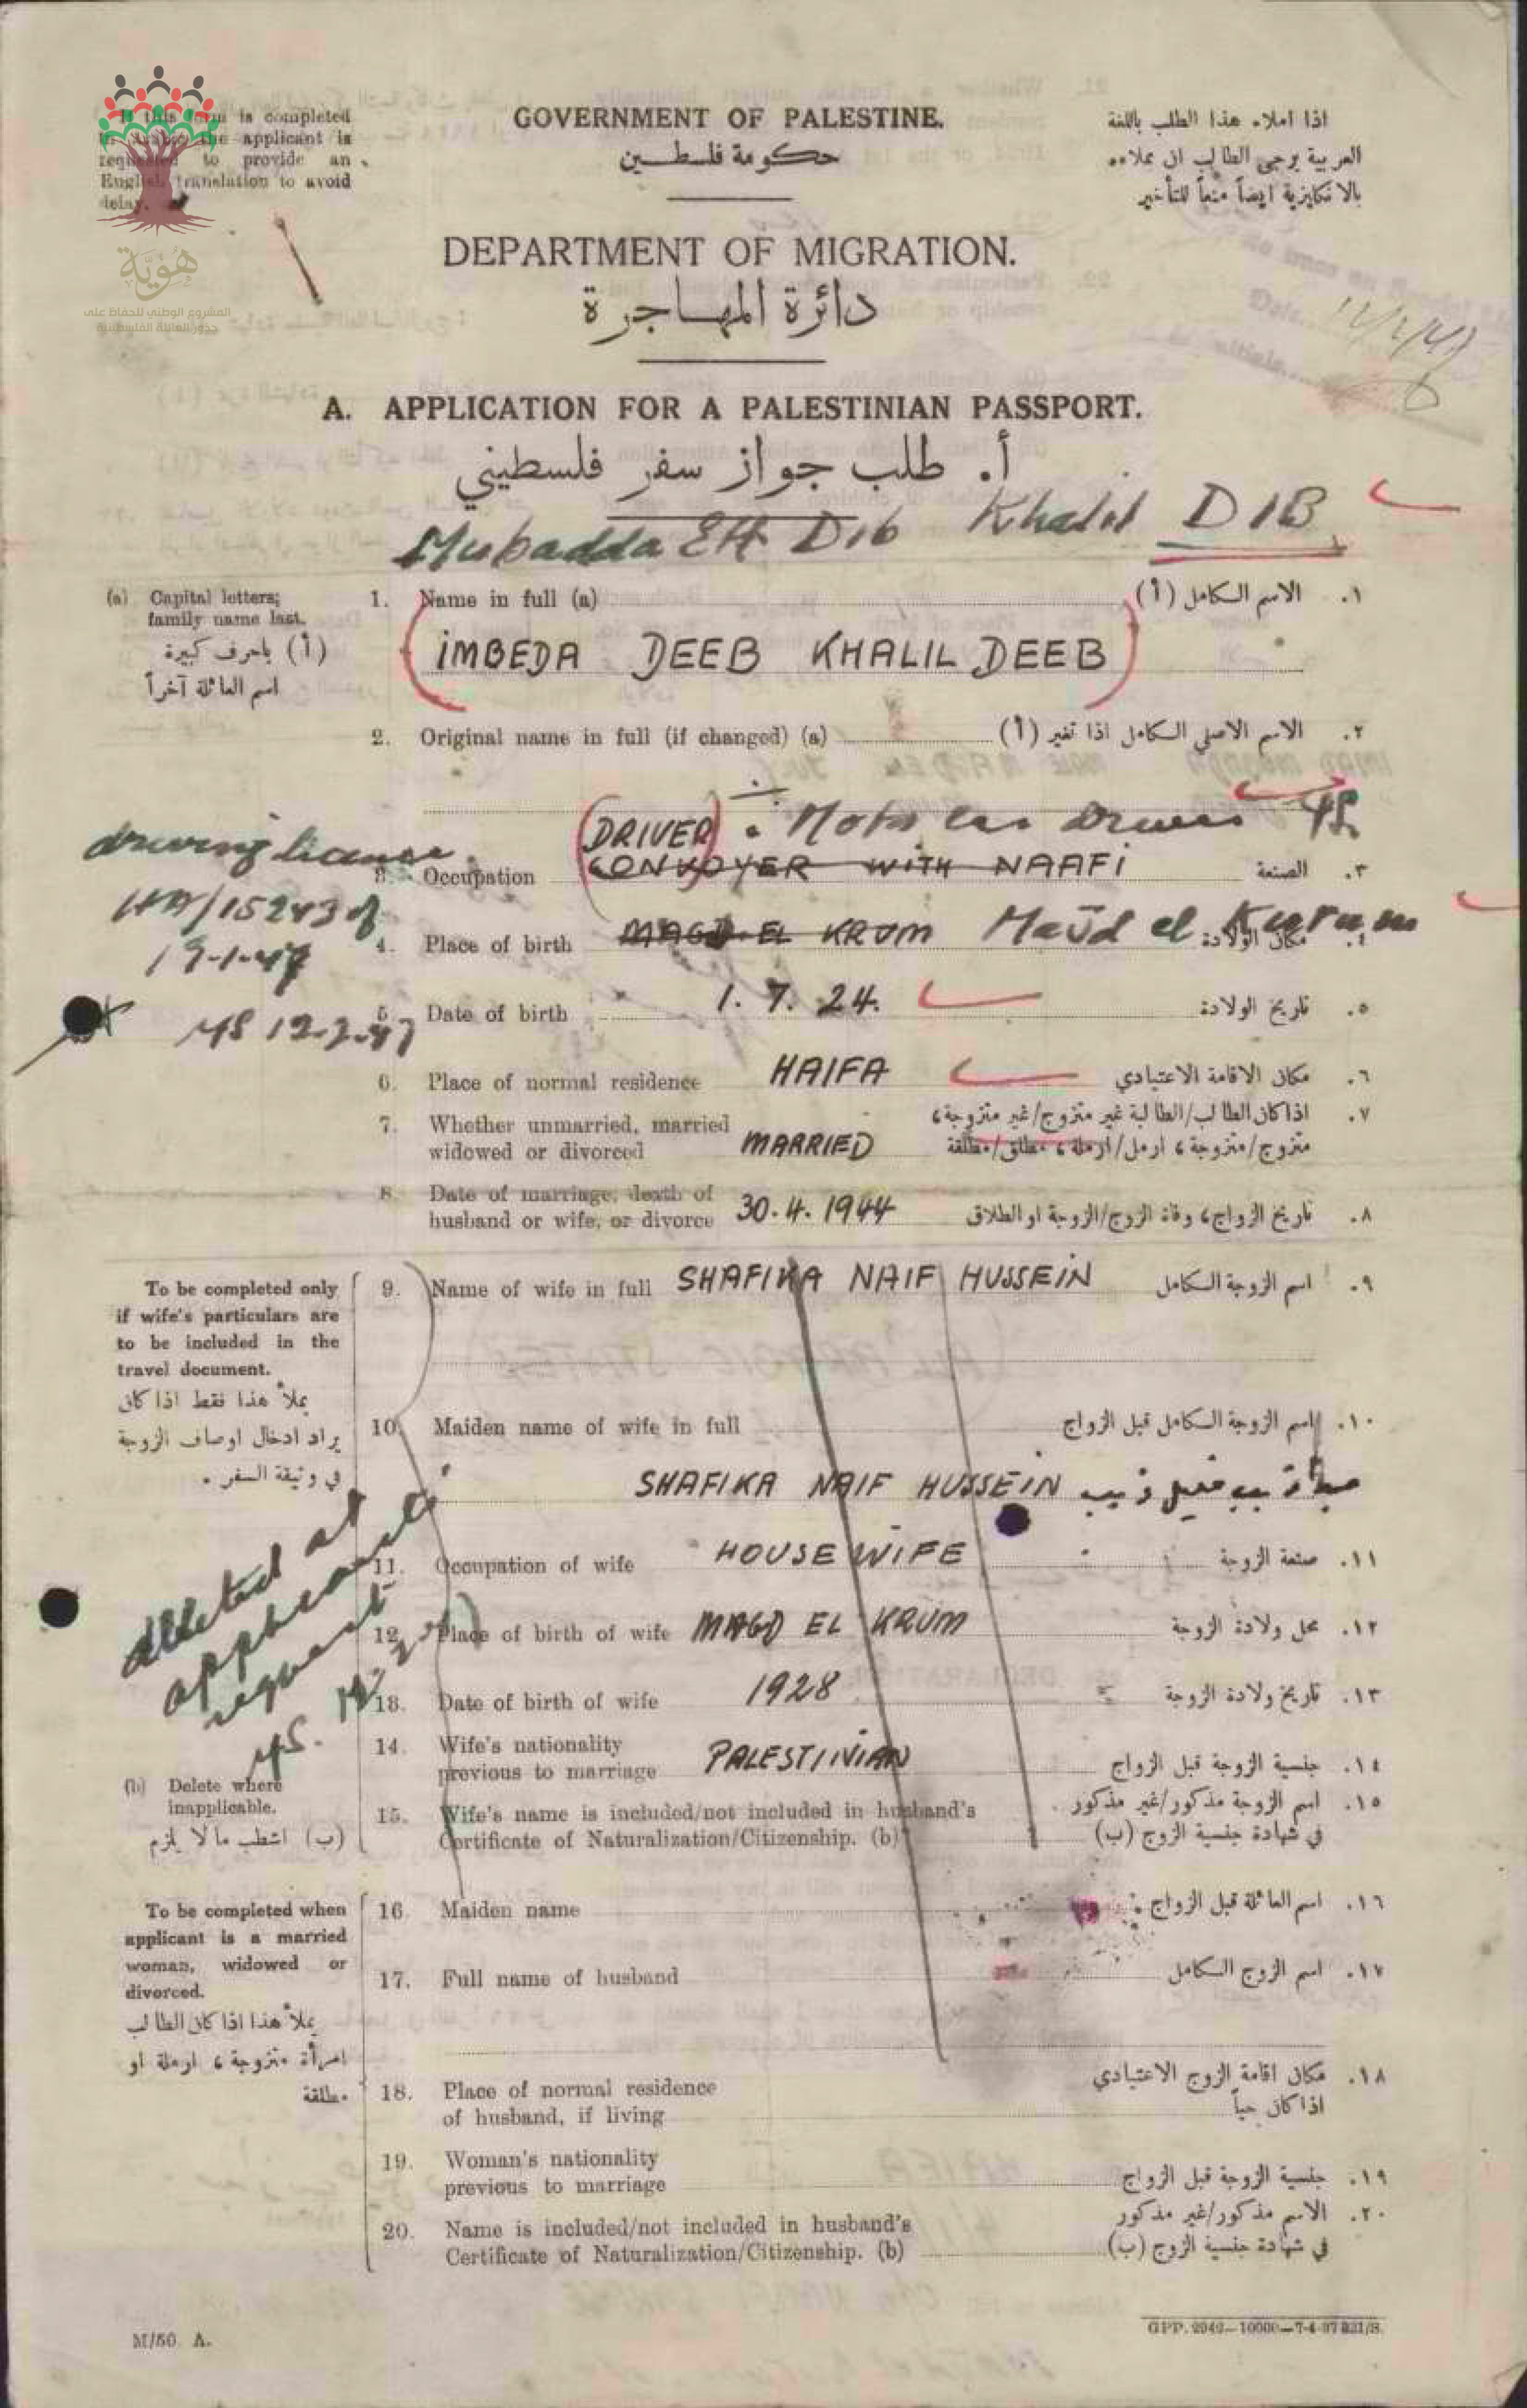 If this form is completed
in Arabic the applicant is
requested to provide an
English translation to avoid
delay.
هُوِيَّة
المشروع الوطني للحفاظ على
جذور العائلة الفلسطينية
GOVERNMENT OF PALESTINE.
حكومة فلسطين
اذا املاء هذا الطلب باللغة
العربية يرجى الطالب ان يملاءه
بالانكليزية ايضاً منعاً للتأخير
DEPARTMENT OF MIGRATION.
دائرة المهاجرة
Date 12/2/47
A. APPLICATION FOR A PALESTINIAN PASSPORT.
أ. طلب جواز سفر فلسطيني
Mubadda Eff Dib Khalil DIB
(a) Capital letters;
family name last.
(أ) باحرف كبيرة
اسم العائلة آخراً
1. Name in full (a) الاسم الكامل (أ) ١.
(IMBEDA DEEB KHALIL DEEB)
2. Original name in full (if changed) (a) الاسم الاصلي الكامل اذا تغير (أ) ٢.
(DRIVER) : Motor car driver YS.
driving licence
HA/15243 of
19-1-47
YS 12-2-47
3. Occupation CONVOYER WITH NAAFI الصنعة ٣.
4. Place of birth MAGD-EL KRUM Majd el Kurum مكان الولادة ٤.
5. Date of birth 1. 7. 24. تاريخ الولادة ٥.
6. Place of normal residence HAIFA مكان الاقامة الاعتيادي ٦.
7. Whether unmarried, married
widowed or divorced MARRIED
اذا كان الطالب/الطالبة غير متزوج/غير متزوجة، ٧.
متزوج/متزوجة، ارمل/ارملة، مطلق/مطلقة
8. Date of marriage, death of
husband or wife, or divorce 30. 4. 1944 تاريخ الزواج، وفاة الزوج/الزوجة او الطلاق ٨.
To be completed only
if wife's particulars are
to be included in the
travel document.
يملأ هذا فقط اذا كان
يراد ادخال اوصاف الزوجة
في وثيقة السفر.
9. Name of wife in full SHAFIKA NAIF HUSSEIN اسم الزوجة الكامل ٩.
10. Maiden name of wife in full اسم الزوجة الكامل قبل الزواج ١٠.
SHAFIKA NAIF HUSSEIN
deleted at
applicant's
request
YS. 12.2.47
11. Occupation of wife HOUSE WIFE صنعة الزوجة ١١.
12. Place of birth of wife MAGD EL KRUM محل ولادة الزوجة ١٢.
13. Date of birth of wife 1928 تاريخ ولادة الزوجة ١٣.
14. Wife's nationality
previous to marriage PALESTINIAN جنسية الزوجة قبل الزواج ١٤.
(b) Delete where
inapplicable.
(ب) اشطب ما لا يلزم
15. Wife's name is included/not included in husband's
Certificate of Naturalization/Citizenship. (b)
اسم الزوجة مذكور/غير مذكور ١٥.
في شهادة جنسية الزوج (ب)
To be completed when
applicant is a married
woman, widowed or
divorced.
يملأ هذا اذا كان الطالب
امرأة متزوجة، ارملة او
مطلقة.
16. Maiden name اسم العائلة قبل الزواج ١٦.
17. Full name of husband اسم الزوج الكامل ١٧.
18. Place of normal residence
of husband, if living
مكان اقامة الزوج الاعتيادي ١٨.
اذا كان حياً
19. Woman's nationality
previous to marriage جنسية الزوجة قبل الزواج ١٩.
20. Name is included/not included in husband's
Certificate of Naturalization/Citizenship. (b)
الاسم مذكور/غير مذكور ٢٠.
في شهادة جنسية الزوج (ب)
M/50 A.
GPP. 2942—10000—7-4-37 831/S.